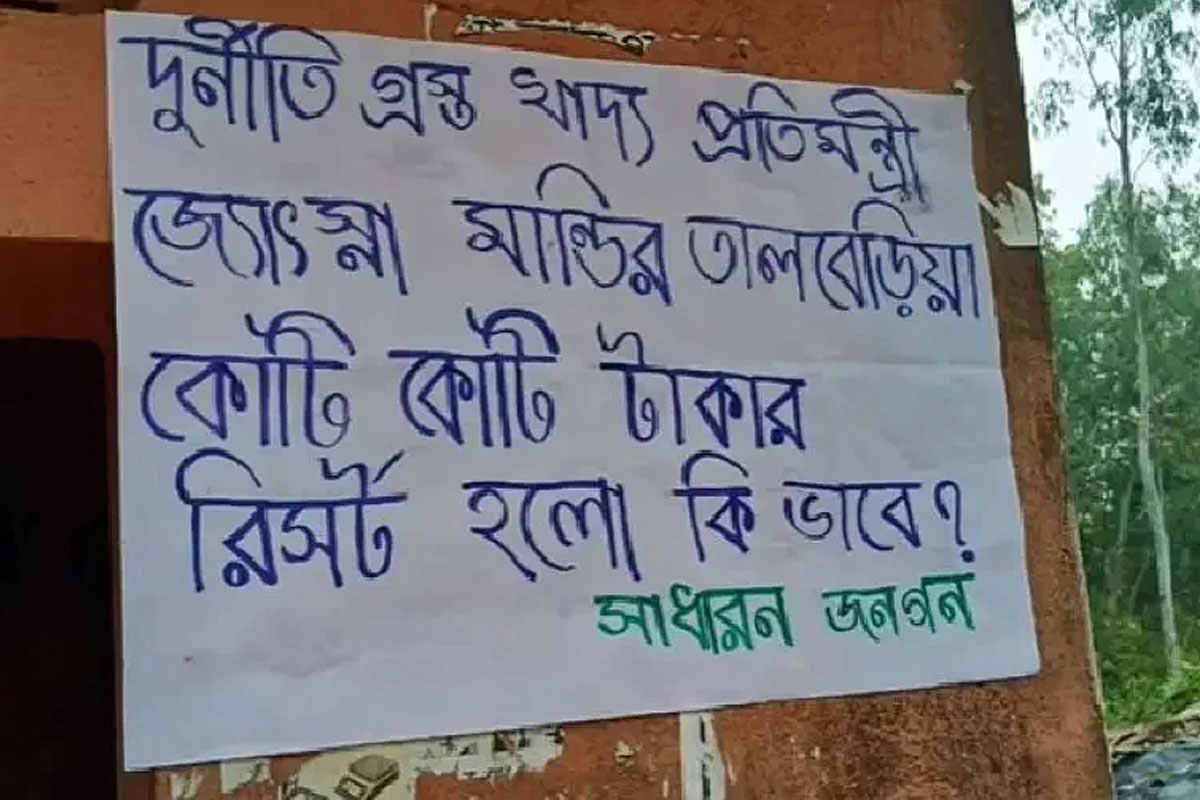 দুর্নীতি গ্রস্ত খাদ্য প্রতিমন্ত্রী
জ্যোৎস্না মান্ডির তালবেড়িয়া
কোটি কোটি টাকার
রিসর্ট হলো কি ভাবে?
সাধারন জনগন